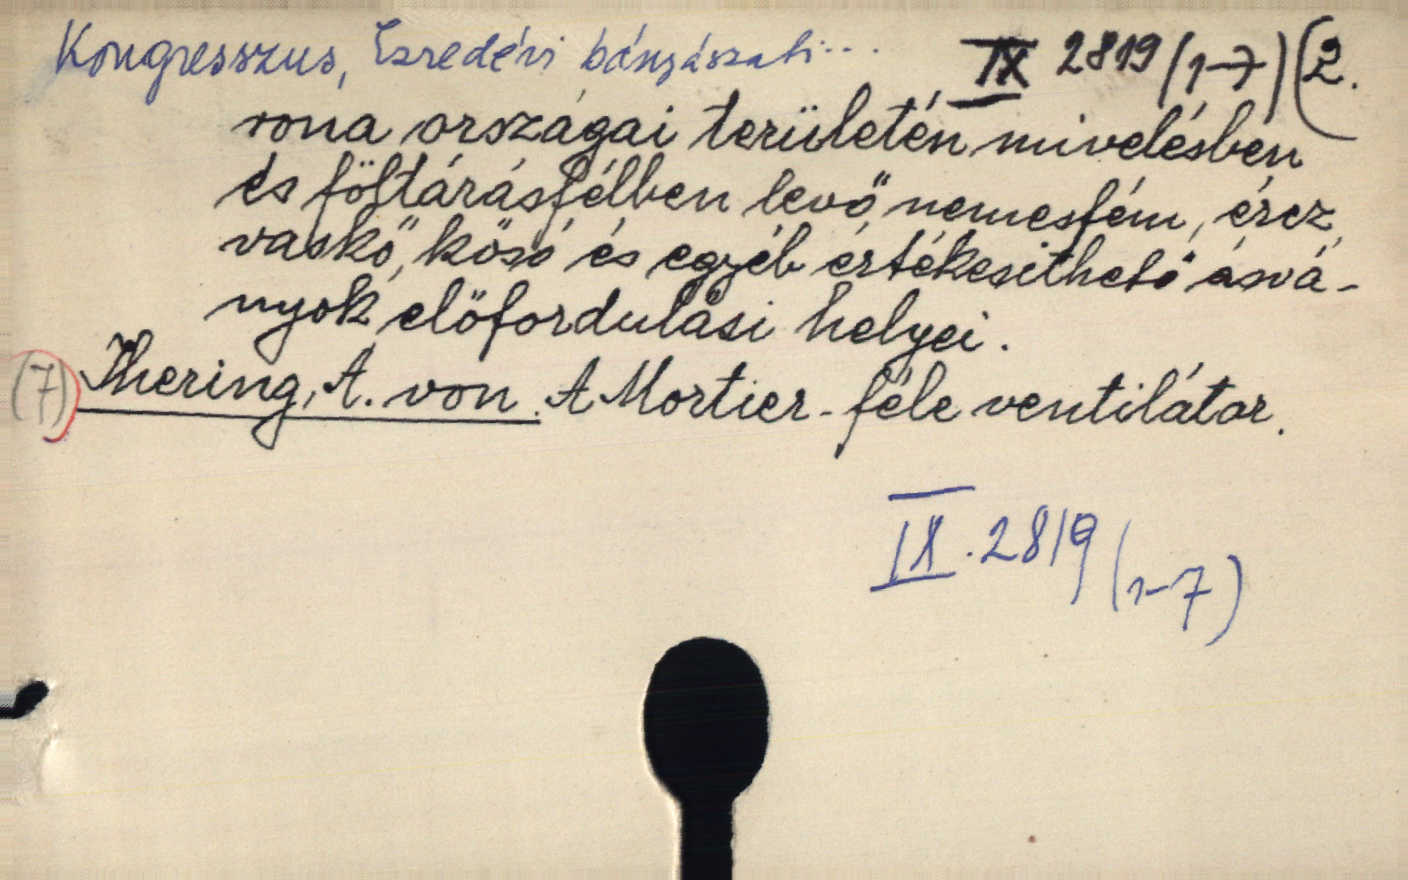 Kongresszus, Ezredévi bányászati... IX 2819 (1-7) (2.
rona országai területén mivelésben
és föltárásfélben levő nemesfém, ércz,
vaskő, kősó és egyéb értékesithető ásvá-
nyok előfordulási helyei.
(7) Ihering, A. von. A Mortier-féle ventilátor.
IX. 2819 (1-7)